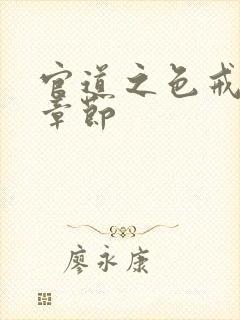 官道之色戒
章节
廖永康